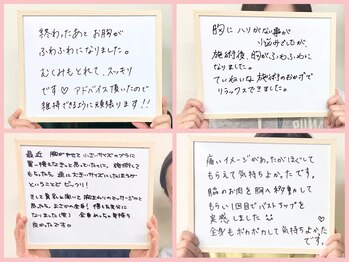 終わったあと お胸が
ふわふわになりました。
むくみもとれて、スッキリ
です♡ アドバイス頂いたので
維持できるように頑張ります!!
胸に ハリがない事が
悩みでしたが、
施術後、胸がふわふわに
なりました。
ていねいな 施術のおかげで
リラックスできました。
最近 胸がやせて 小さいサイズのブラに
買い換えなきゃと思っていたのに、施術して
もらったら、逆に大きいサイズでもいけちゃう
ということで ビックリ!
痛いイメージがあったがほぐして
もらえて気持ちよかったです。
脇のお肉を胸へ移動して
もらい 1回目でバストアップを
実感しました
全身もポカポカして気持ちよかった
です。